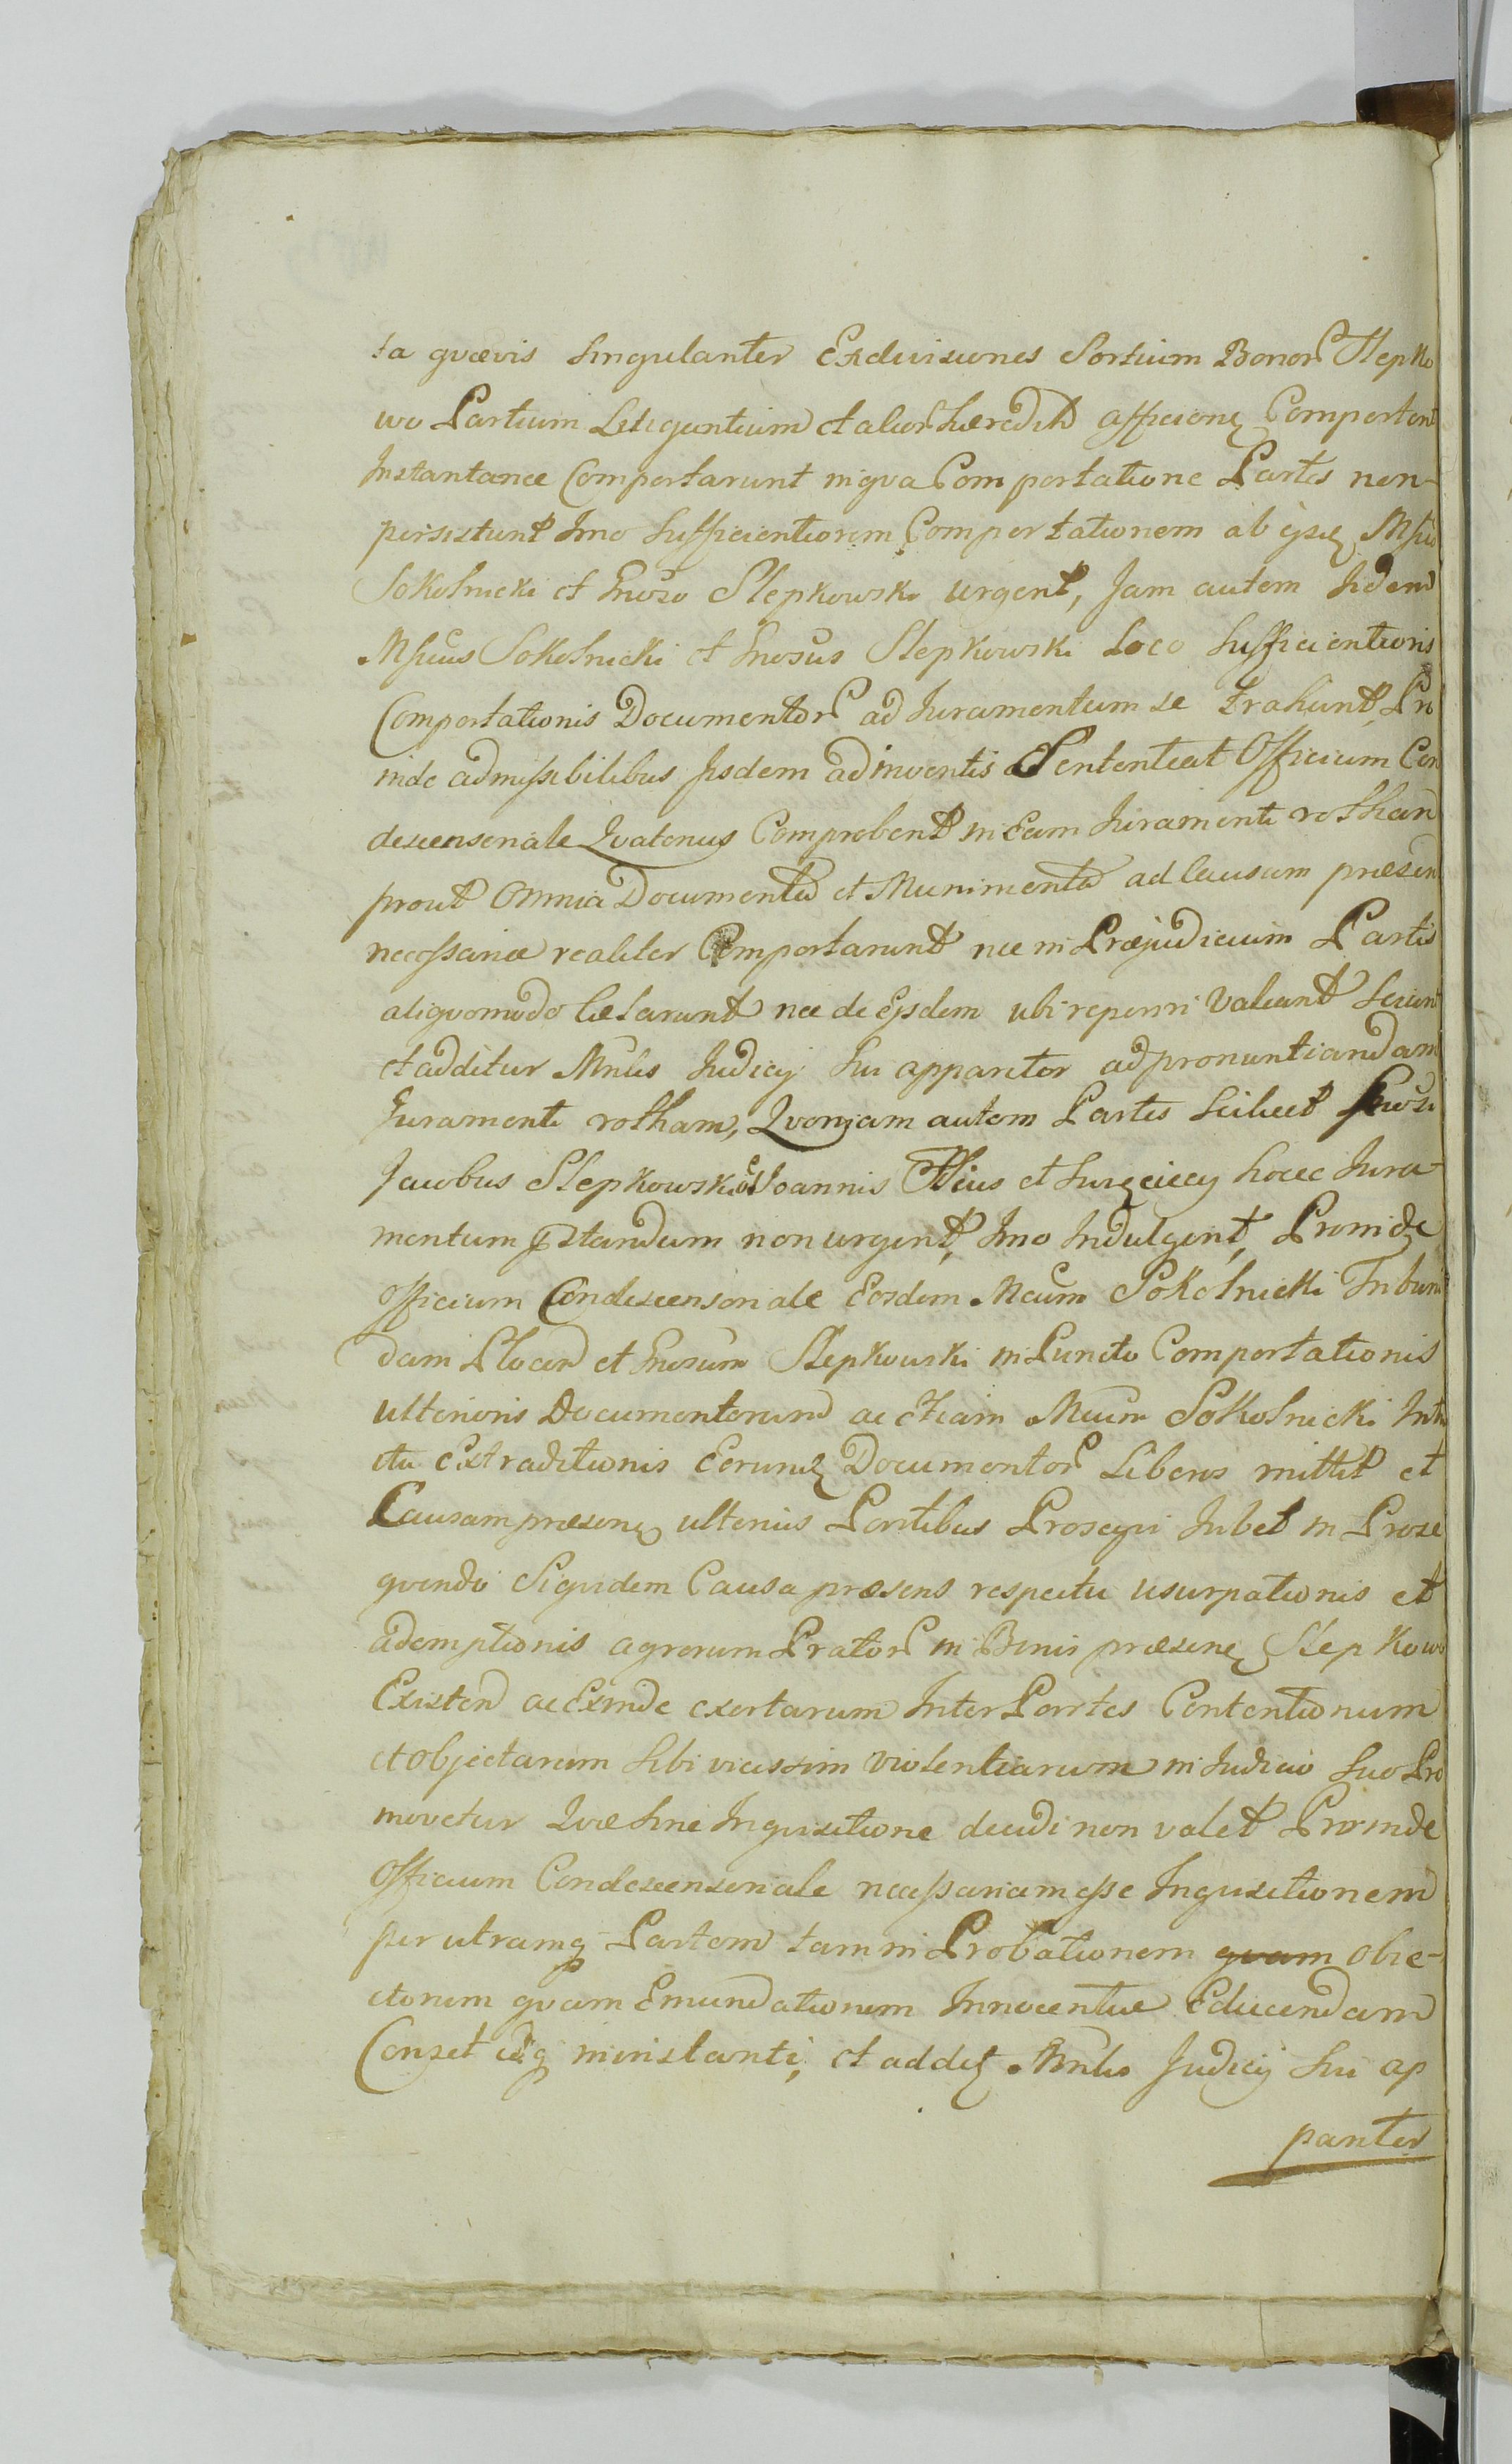 ta quævis singulanter Exdivisiones Sortium Bonor Slepko
wo Partium Litigantium et alior hæredit afficien Comportent
Instantanee Comportarunt in qva Comportatione Partes non-
persistunt Imo Sufficientiorem Comportationem ab ijs Mfico
Sokolnicki et Gnoso Slepkowski urgent, Jam autem Iidem
Mficus Sokolnicki et Gnosus Slepkowski Loco Sufficientioris
Comportationis Documentor ad Juramentum se trahunt, Pro
inde admissibilibus Iisdem adinventis Sententiat Officium Con
descensoriale Qvatenus Comprobent in Eam Juramenti rotham
prout Omnia Documenta et Munimenta ad Causam præsen
necessaria realiter Comportarunt nec in Præjudicium Partis
aliqvomodo Cælarunt nec de Ejsdem ubi reperiri Valeant Sciunt
et additur Mnlis Judicij Sui apparitor ad pronuntiandam
Juramenti rotham, Qvoniam autem Partes Scilicet Gnosi
Jacobus Slepkowski et Joannis Filius et hocce Jura-
mentum præstandum non urgent, Imo Indulgent, Proinde
Officium Condescensoriale Eosdem Mcum Sokolnicki Tribun
dam Plocen et Gnosum Slepkowski in Puncto Comportationis
ulterioris Documentorum ac etiam Mcum Sokolnicki Intu
itu Extraditionis Eorund Documentor Liberos mittit et
Causam præsen ulterius Partibus Proseqvi Jubet in Prose
qvendo Siqvidem Causa præsens respectu usurpationis et
ademptionis agrorum Prator in Bonis præsen Slepkowo
Existen ac Exinde exortarum Inter Partes Contentionum
et objectarum Sibi vicissim Violentiarum in Judicio Suo Pro
movetur Qvæ Sine Inqvisitione decidi non valet Proinde
Officium Condescensoriale necessariam esse Inqvisitionem
per utramq Partem tam in Probationem qvam obie-
ctorum qvam Emundationem Innocentiæ Educendam
Censet idq in instanti, et addit Mnlis Judicij Sui ap
paritor